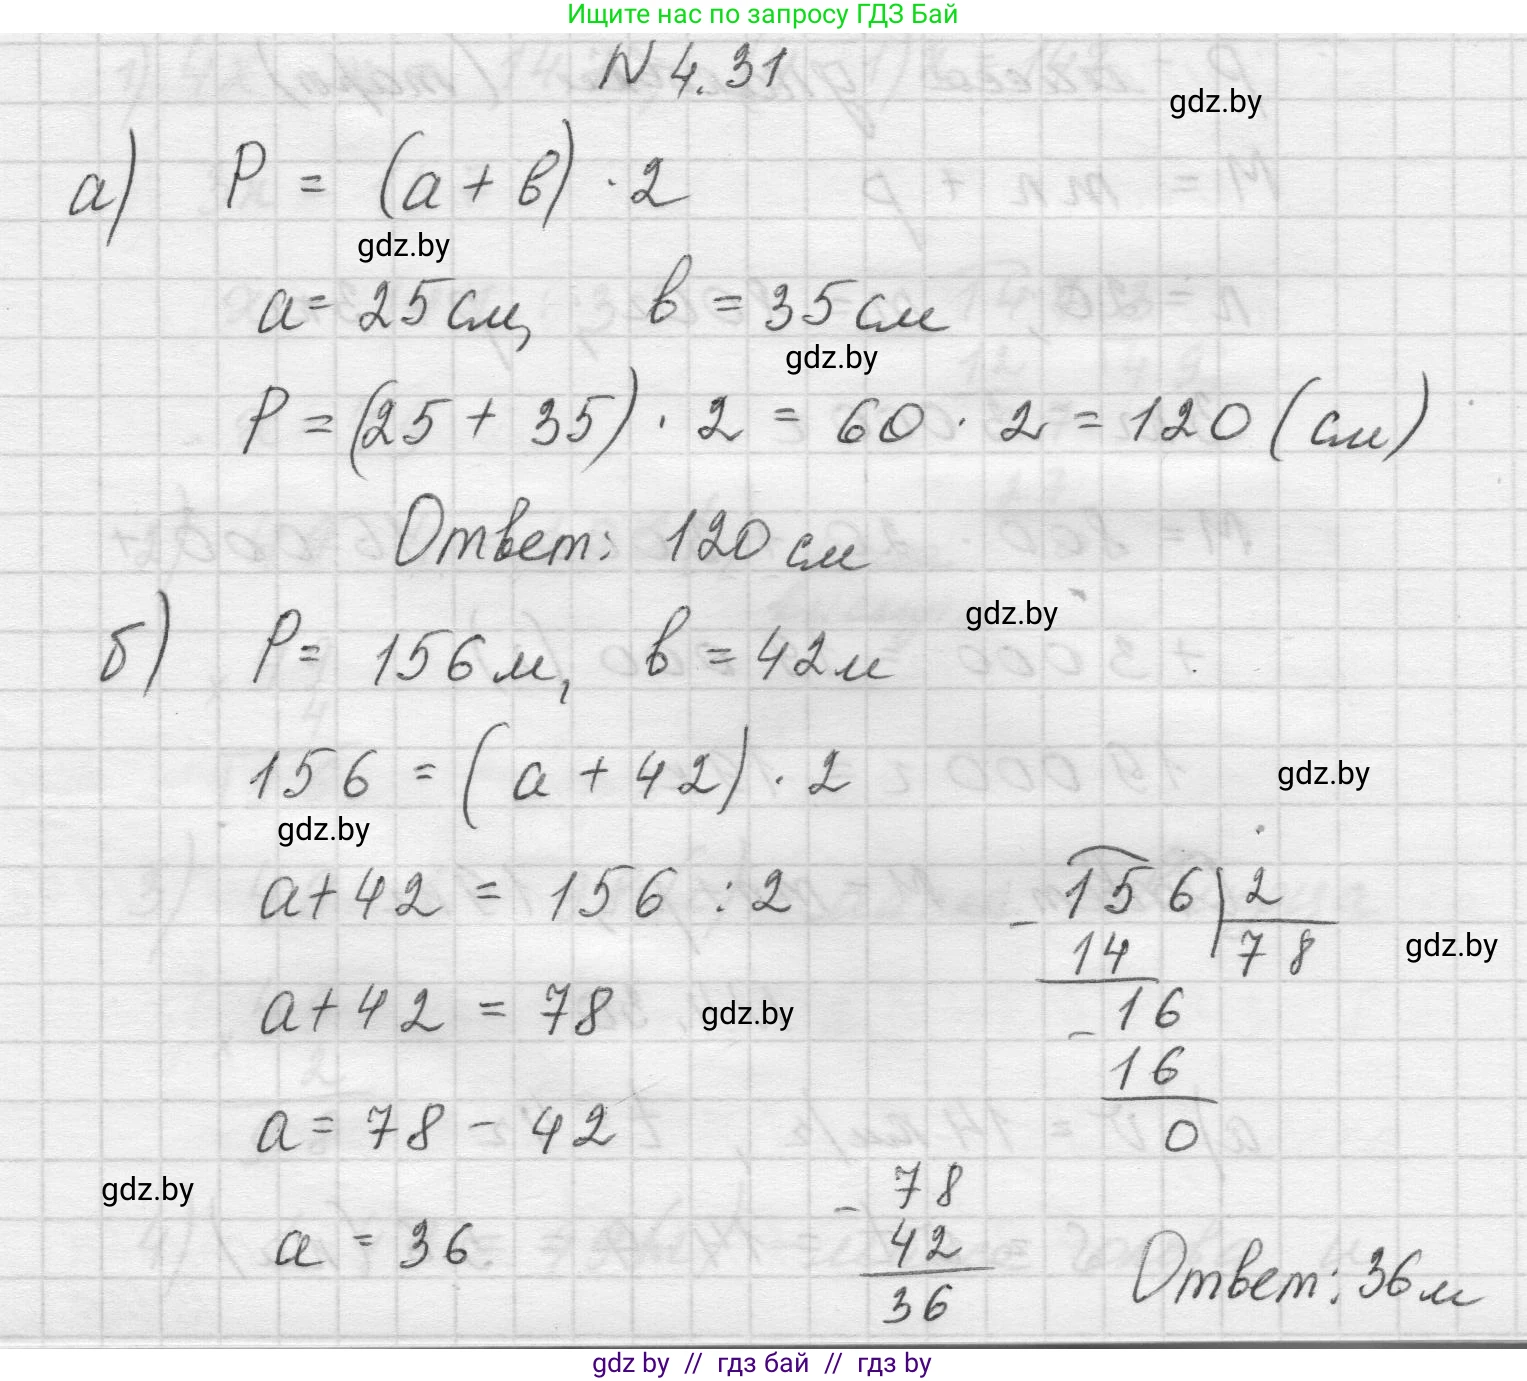 Ищите нас по запросу ГДЗ Бай
N 4.31
gdz.by
а) P = (a + в) · 2
gdz.by
a = 25 см, в = 35 см
gdz.by
P = (25 + 35) · 2 = 60 · 2 = 120 (см)
Ответ: 120 см
gdz.by
б) P = 156 м, в = 42 м
156 = (a + 42) · 2
gdz.by
gdz.by
a + 42 = 156 : 2
- 156 | 2
14 78
gdz.by
a + 42 = 78
gdz.by
- 16
16
0
a = 78 - 42
gdz.by
a = 36
- 78
42
36
Ответ: 36 м
gdz by // гдз бай // гдз by